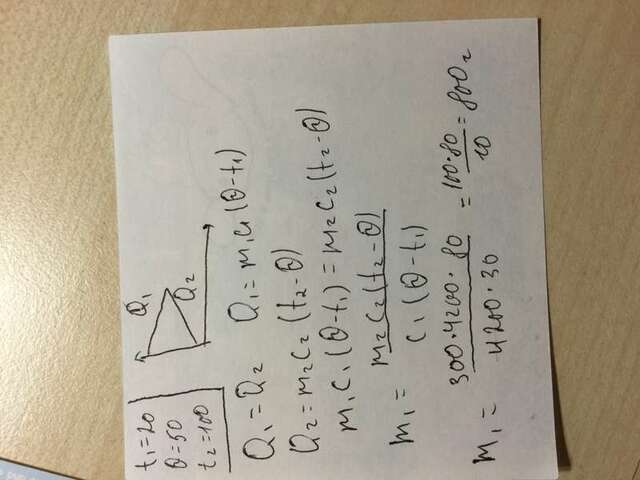 t₁=20
θ=50
t₂=100
Q₁
Q₂
Q₁=Q₂ Q₁=m₁c₁(θ-t₁)
Q₂=m₂c₂(t₂-θ)
m₁c₁(θ-t₁)=m₂c₂(t₂-θ)
m₁=
m₂c₂(t₂-θ)
c₁(θ-t₁)
m₁=
300·4200·80
4200·30
=
100·80
10
=800г